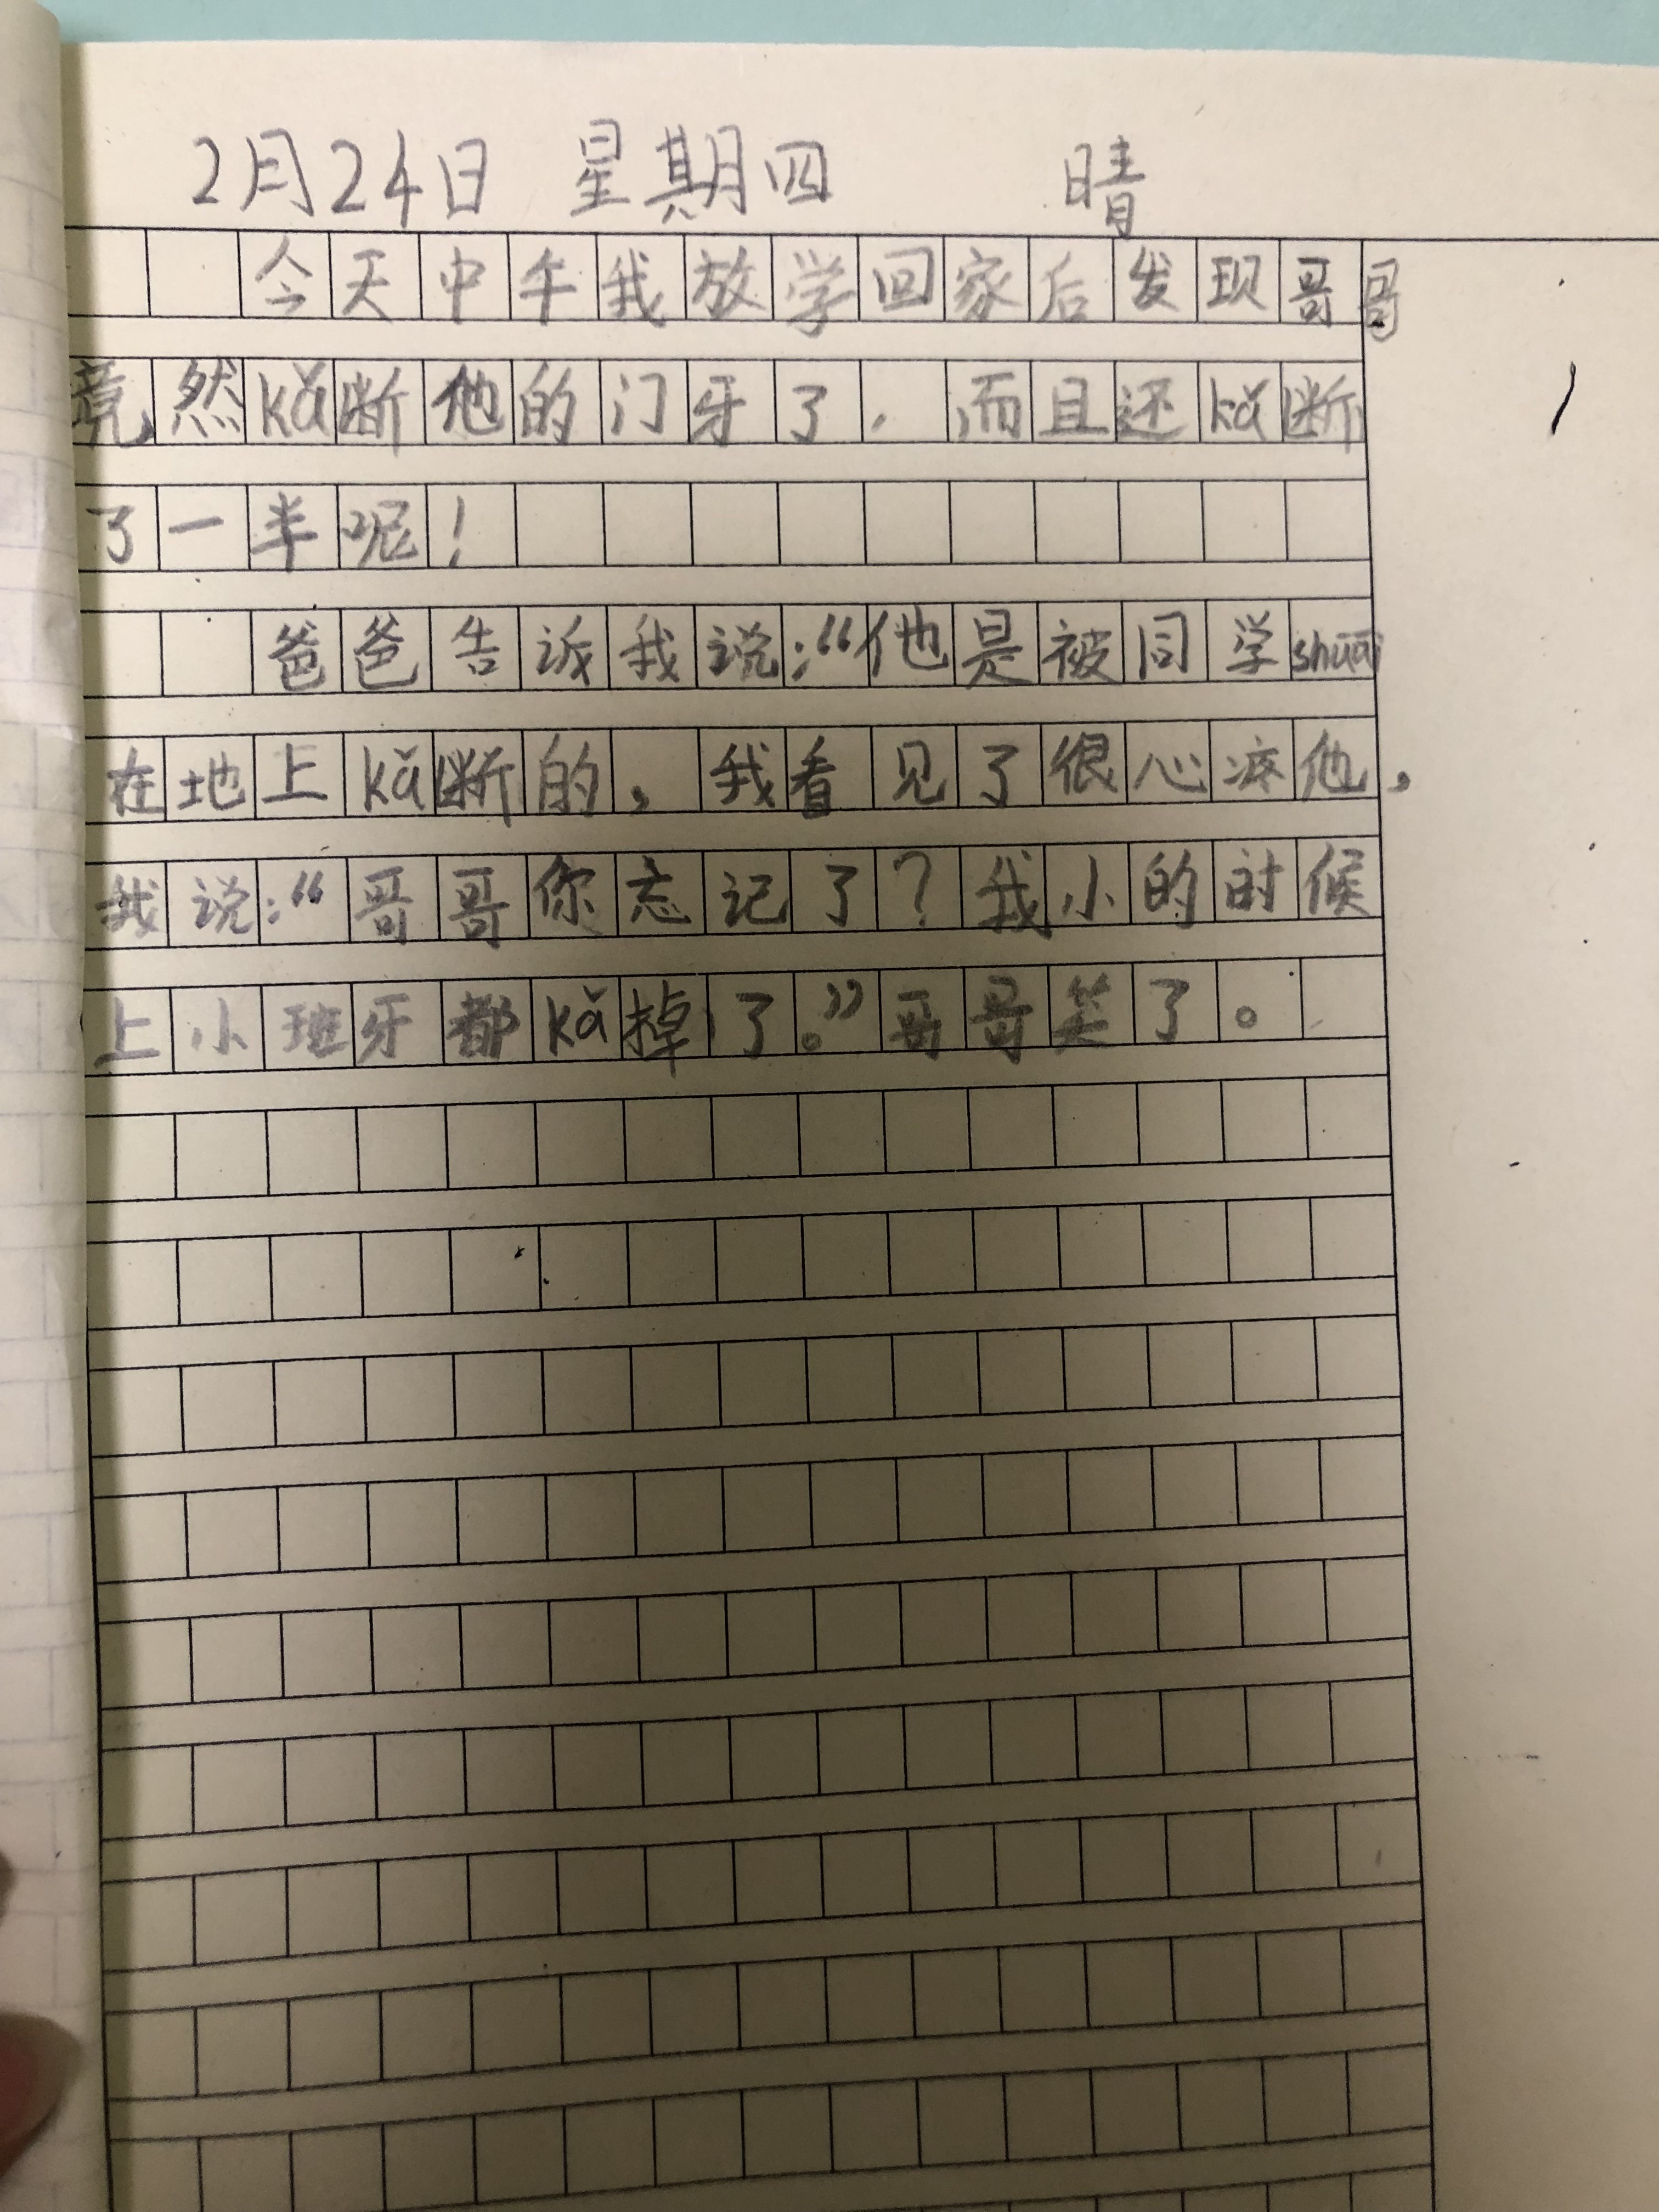 2月24日 星期四 晴
今天中午我放学回家后发现哥哥
竟然kǎ断他的门牙了，而且还kǎ断
了一半呢！
爸爸告诉我说：“他是被同学shuāi
在地上kǎ断的，我看见了很心疼他，
我说：“哥哥你忘记了？我小的时候
上小班牙都kǎ掉了。”哥哥笑了。